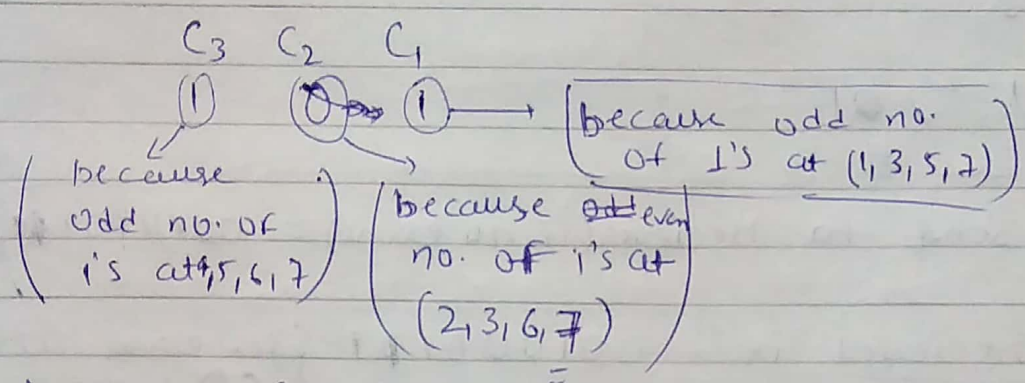 C3 C2 C1
1 0 1
because odd no.
of 1's at (1, 3, 5, 7)
because
odd no. of
1's at 4, 5, 6, 7
because even
no. of 1's at
(2, 3, 6, 7)